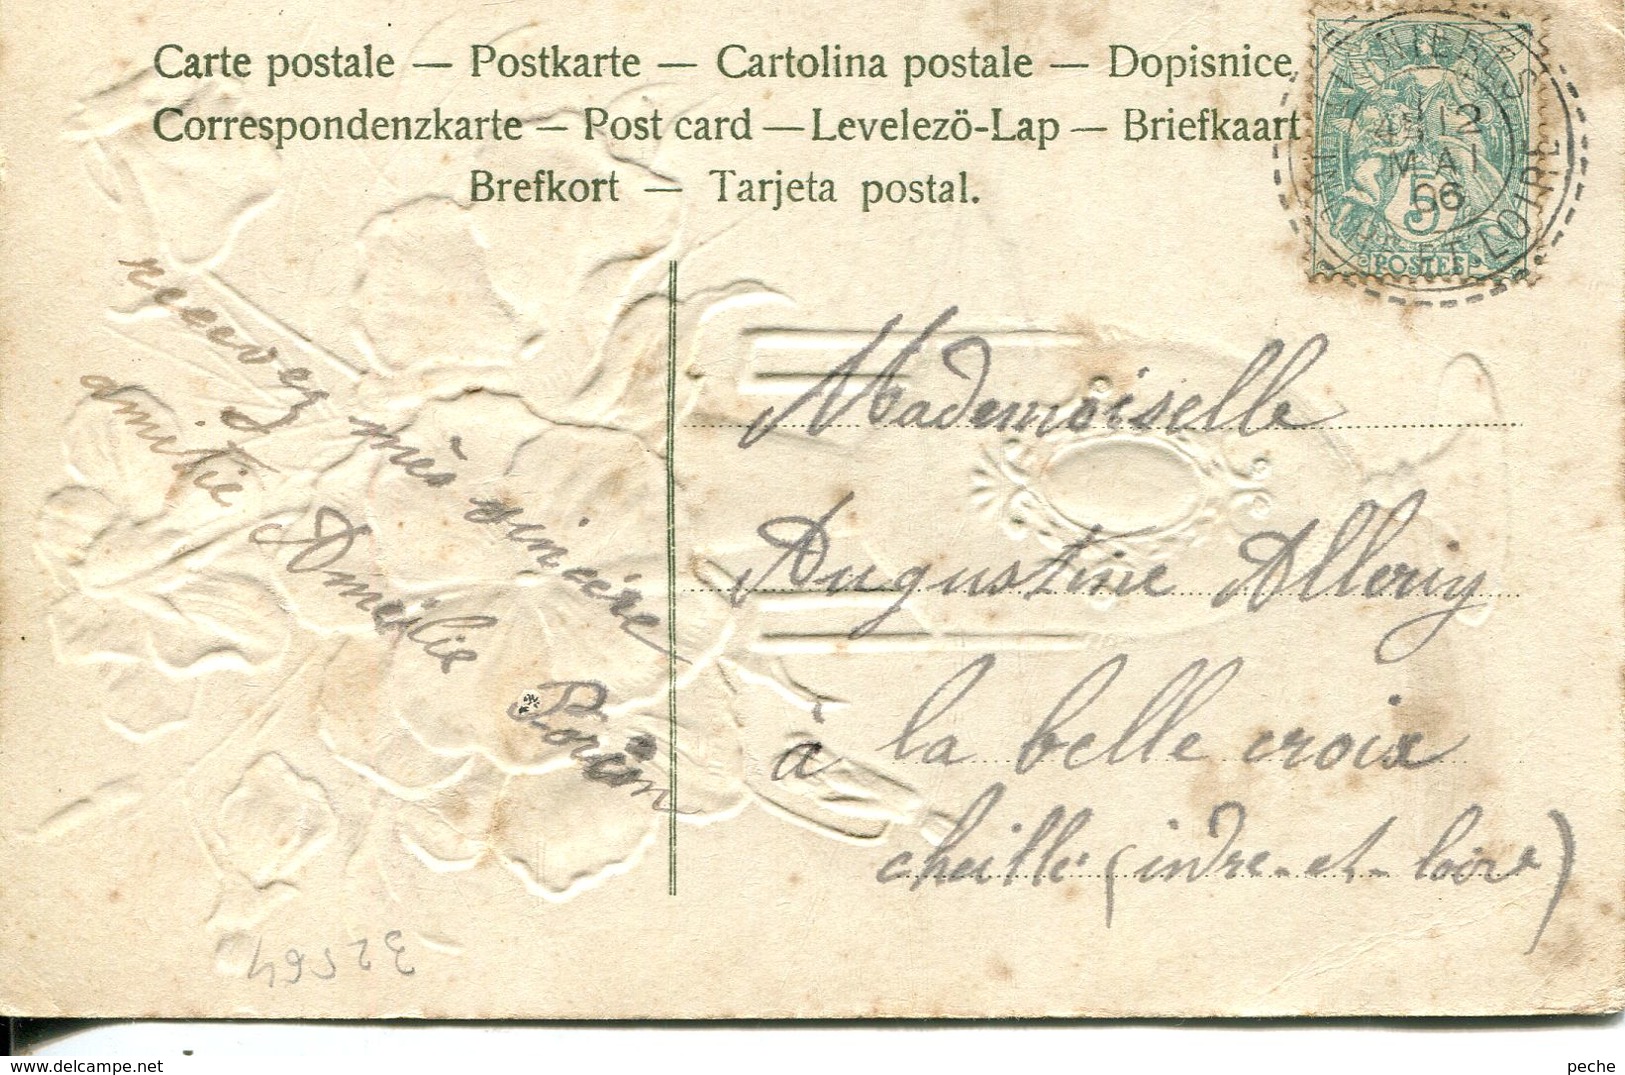 Carte postale — Postkarte — Cartolina postale — Dopisnice
Correspondenzkarte — Post card — Levelezö-Lap — Briefkaart
Brefkort — Tarjeta postal.
12
MAI
06
ET LOIRE
5
POSTES
recevez mes sincère
amitie Amélie
Mademoiselle
Augustine Allouy
à la belle croix
cheillé (indre-et-loire)
32564
peche